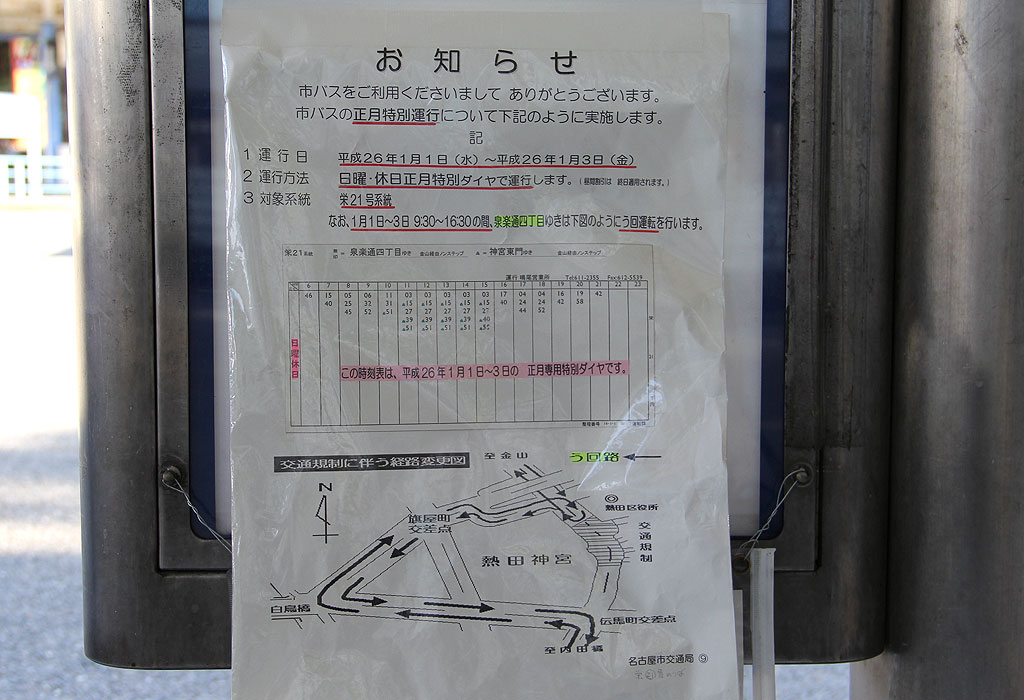 お知らせ
市バスをご利用くださいまして ありがとうございます。
市バスの正月特別運行について下記のように実施します。
記
1 運行日 平成26年1月1日(水)~平成26年1月3日(金)
2 運行方法 日曜・休日正月特別ダイヤで運行します。(昼間割引は 終日適用されます。)
3 対象系統 栄21号系統
なお、1月1日~3日 9:30~16:30の間、泉楽通四丁目ゆきは下図のようにう回運転を行います。
栄21系統 無印= 泉楽通四丁目ゆき 金山経由ノンステップ ▲= 神宮東門ゆき 金山経由ノンステップ
運行 鳴尾営業所 Tel:611-2355 Fax:612-5539
6 7 8 9 10 11 12 13 14 15 16 17 18 19 20 21 22 23
46 15 05 06 11 03 03 03 03 03 17 04 04 16 19 42
40 25 32 31 ▲15 ▲15 ▲15 ▲15 ▲15 40 24 24 42 58
45 52 ▲51 27 27 27 27 27 44 52
▲39 ▲39 ▲39 ▲39 ▲40
▲51 ▲51 ▲51 ▲51 ▲52
日曜休日
この時刻表は、平成26年1月1日~3日の 正月専用特別ダイヤです。
交通規制に伴う経路変更図
至金山
う回路
N
熱田区役所
旗屋町
交差点
交通規制
熱田神宮
白鳥橋
伝馬町交差点
至内田橋
名古屋市交通局 ⑨